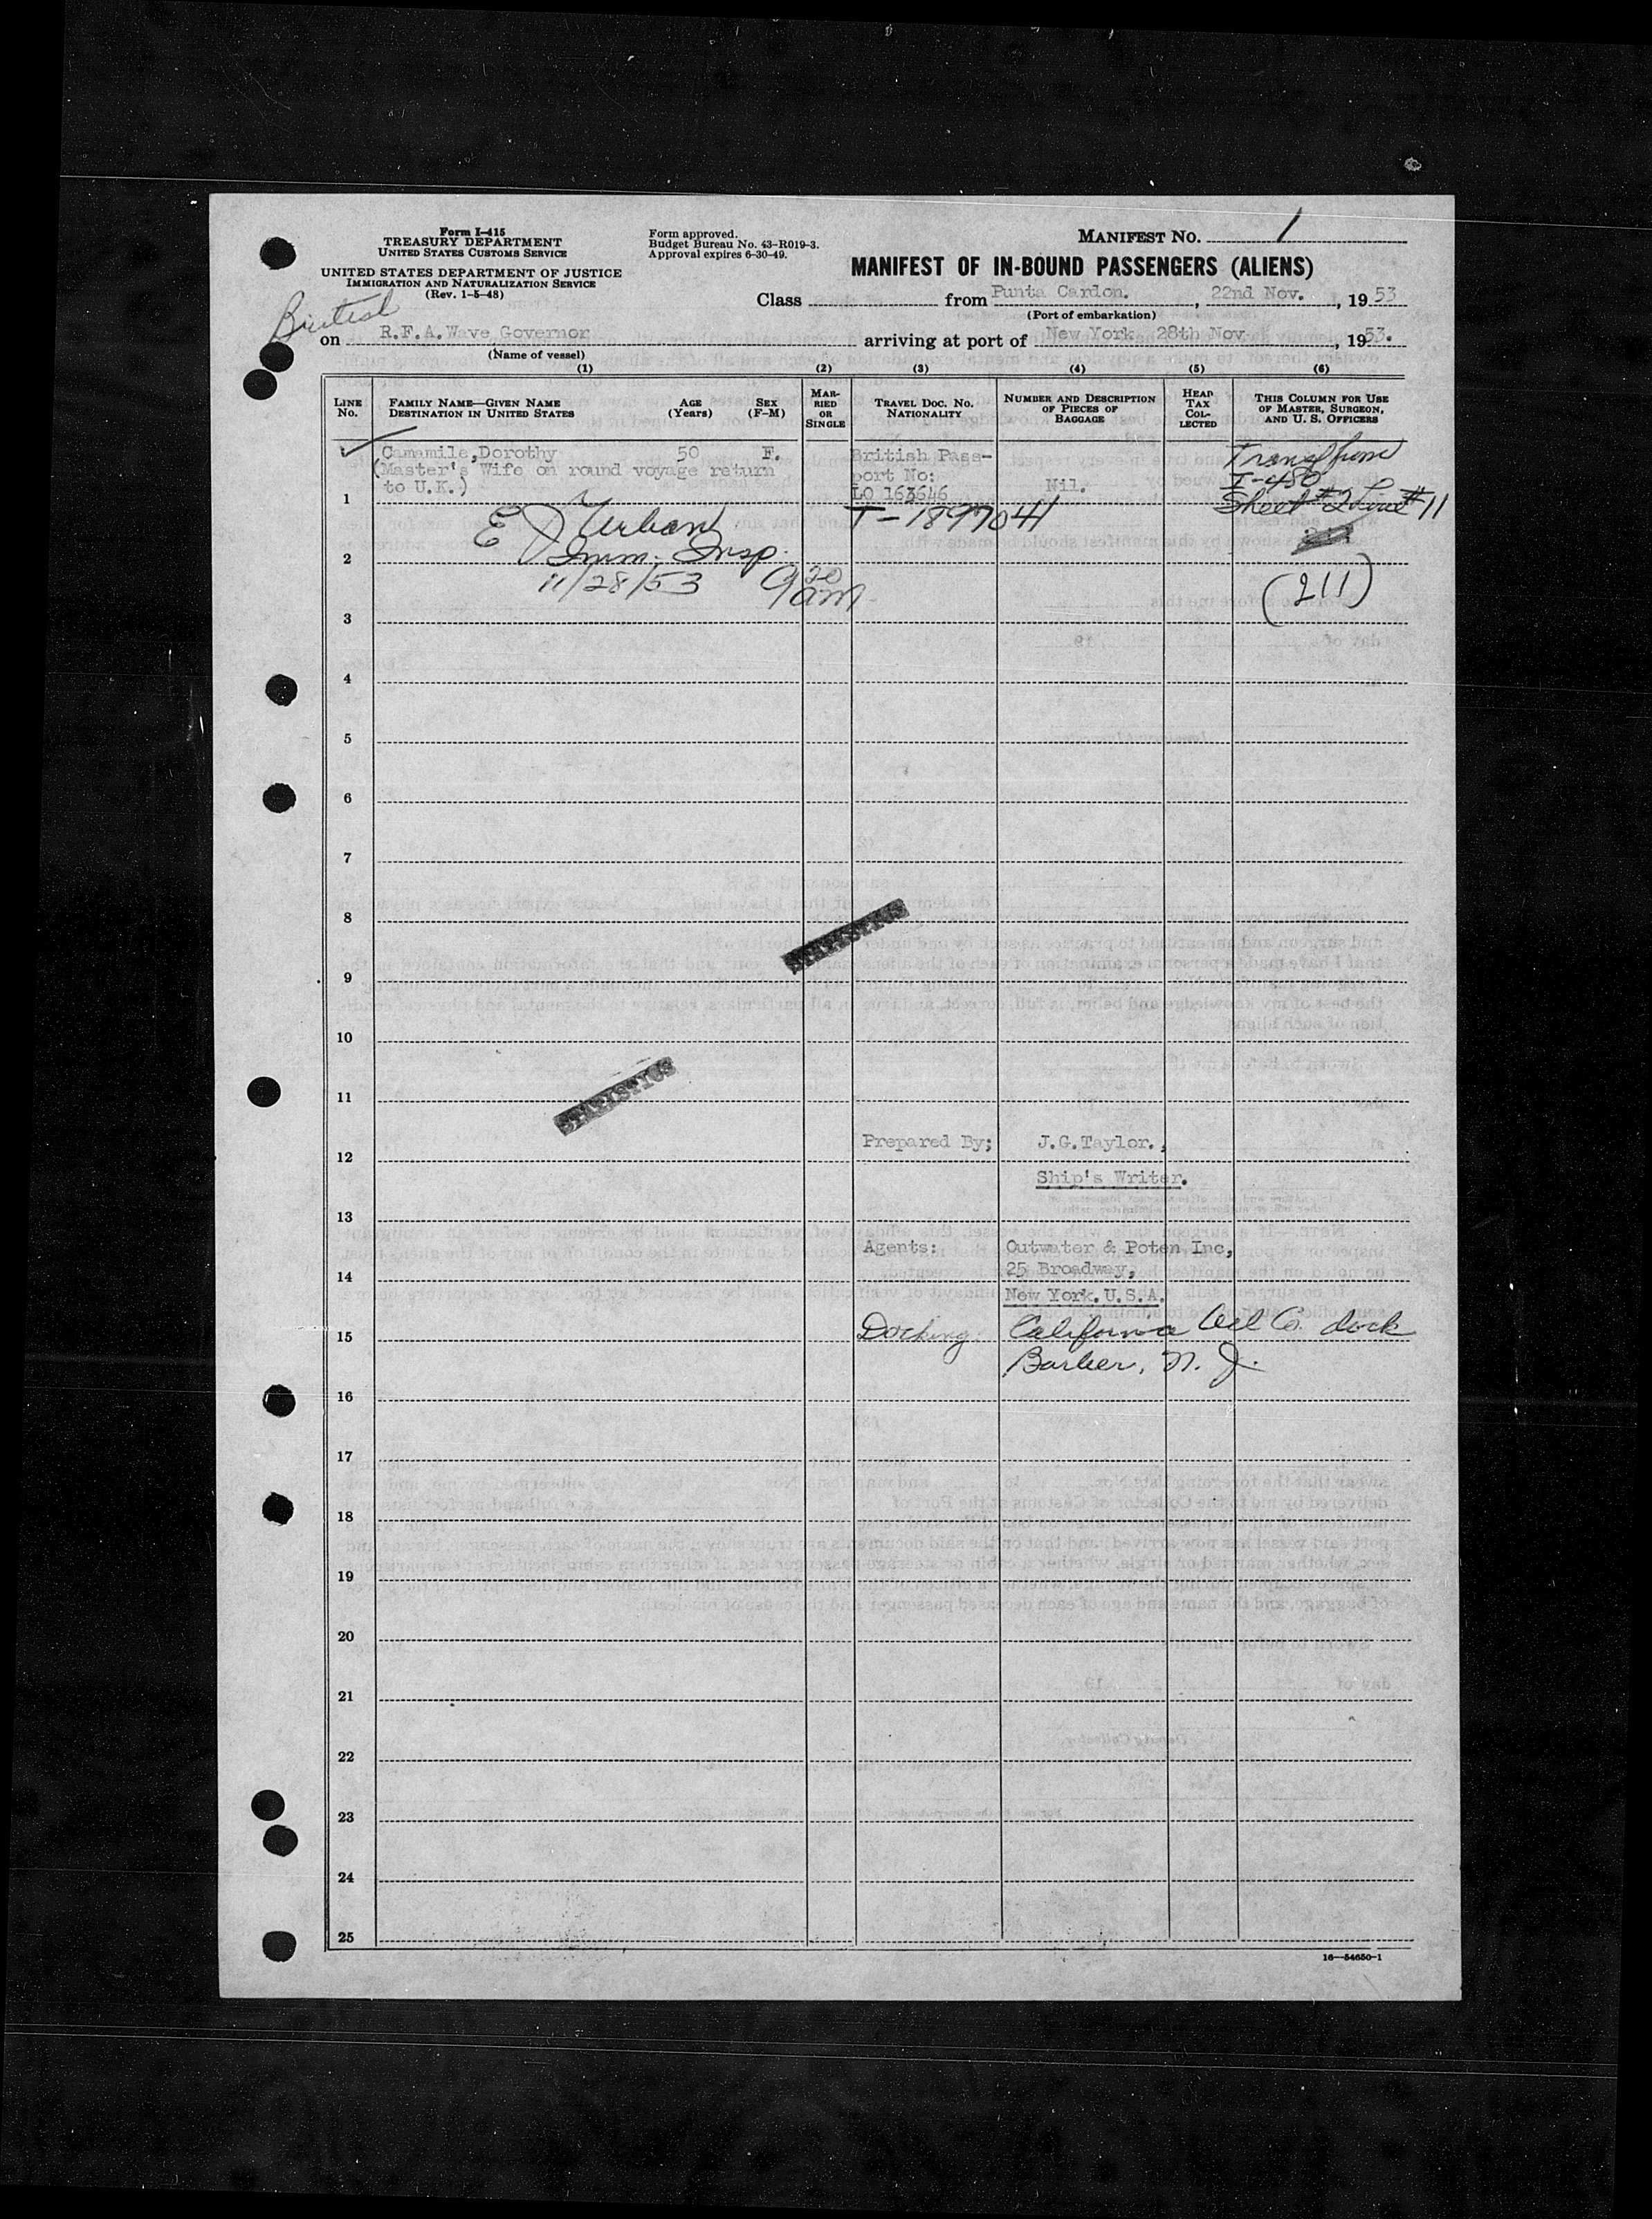 Form I-415
TREASURY DEPARTMENT
UNITED STATES CUSTOMS SERVICE
UNITED STATES DEPARTMENT OF JUSTICE
IMMIGRATION AND NATURALIZATION SERVICE
(Rev. 1-5-48)
Form approved.
Budget Bureau No. 43-R019-3.
Approval expires 6-30-49.
MANIFEST NO. 1
MANIFEST OF IN-BOUND PASSENGERS (ALIENS)
Class from Punta Cardon. , 22nd Nov. , 19 53
(Port of embarkation)
British
on R.F.A. Wave Governor arriving at port of New York 28th Nov. , 19 53.
(Name of vessel)
(1) (2) (3) (4) (5) (6)
LINE No. FAMILY NAME—GIVEN NAME DESTINATION IN UNITED STATES AGE (Years) SEX (F-M) MARRIED OR SINGLE TRAVEL DOC. NO. NATIONALITY NUMBER AND DESCRIPTION OF PIECES OF BAGGAGE HEAD TAX COLLECTED THIS COLUMN FOR USE OF MASTER, SURGEON, AND U. S. OFFICERS
Camamile, Dorothy 50 F. British Pass-
(Master's Wife on round voyage return port No:
to U.K.) LO 163646 Nil. I-480
1 T-1897041 Sheet #2 Line #11
E J Urban
2 Imm. Insp.
11/28/53 9 20 am (211)
3
4
5
6
7
8
STATISTICS
9
10
STATISTICS
11
Prepared By; J.G.Taylor.,
12
Ship's Writer.
13
Agents: Outwater & Poten Inc,
14 25 Broadway,
New York. U.S.A.
15 Docking: California Oil Co. dock
Barber, N. J.
16
17
18
19
20
21
22
23
24
25
16—54650-1